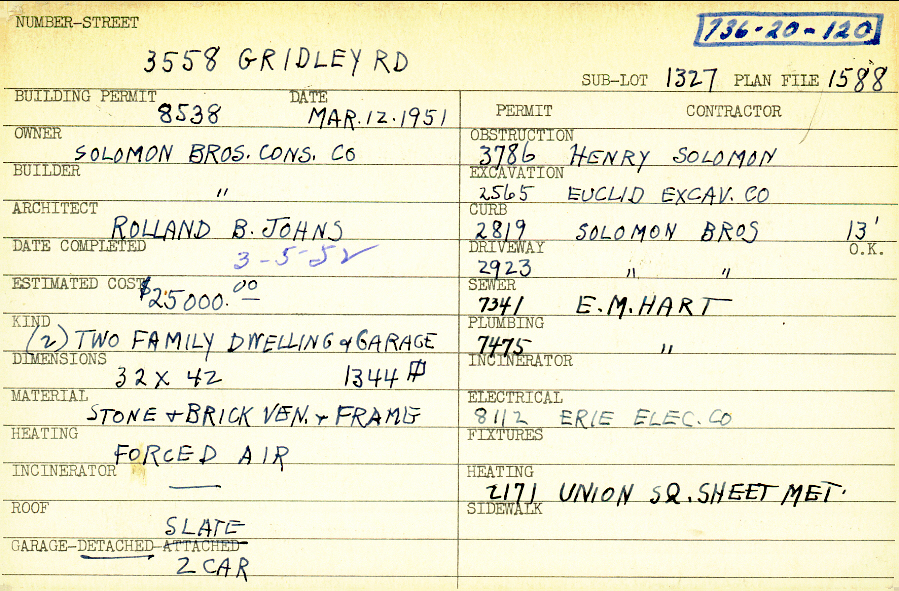 NUMBER-STREET
736-20-120
3558 GRIDLEY RD
SUB-LOT 1327 PLAN FILE 1588
BUILDING PERMIT DATE
8538 MAR. 12. 1951
OWNER
SOLOMON BROS. CONS. CO
BUILDER
"
ARCHITECT
ROLLAND B. JOHNS
DATE COMPLETED
3-5-52
ESTIMATED COST
$25000.00
KIND
(2) TWO FAMILY DWELLING & GARAGE
DIMENSIONS
32 X 42 1344 #
MATERIAL
STONE + BRICK VEN. + FRAME
HEATING
FORCED AIR
INCINERATOR
—
ROOF
SLATE
GARAGE-DETACHED-ATTACHED
2 CAR
PERMIT CONTRACTOR
OBSTRUCTION
3786 HENRY SOLOMON
EXCAVATION
2565 EUCLID EXCAV. CO
CURB
2819 SOLOMON BROS 13'
DRIVEWAY O.K.
2923 " "
SEWER
7341 E.M. HART
PLUMBING
7475 "
INCINERATOR
ELECTRICAL
8112 ERIE ELEC. CO
FIXTURES
HEATING
2171 UNION SQ. SHEET MET.
SIDEWALK